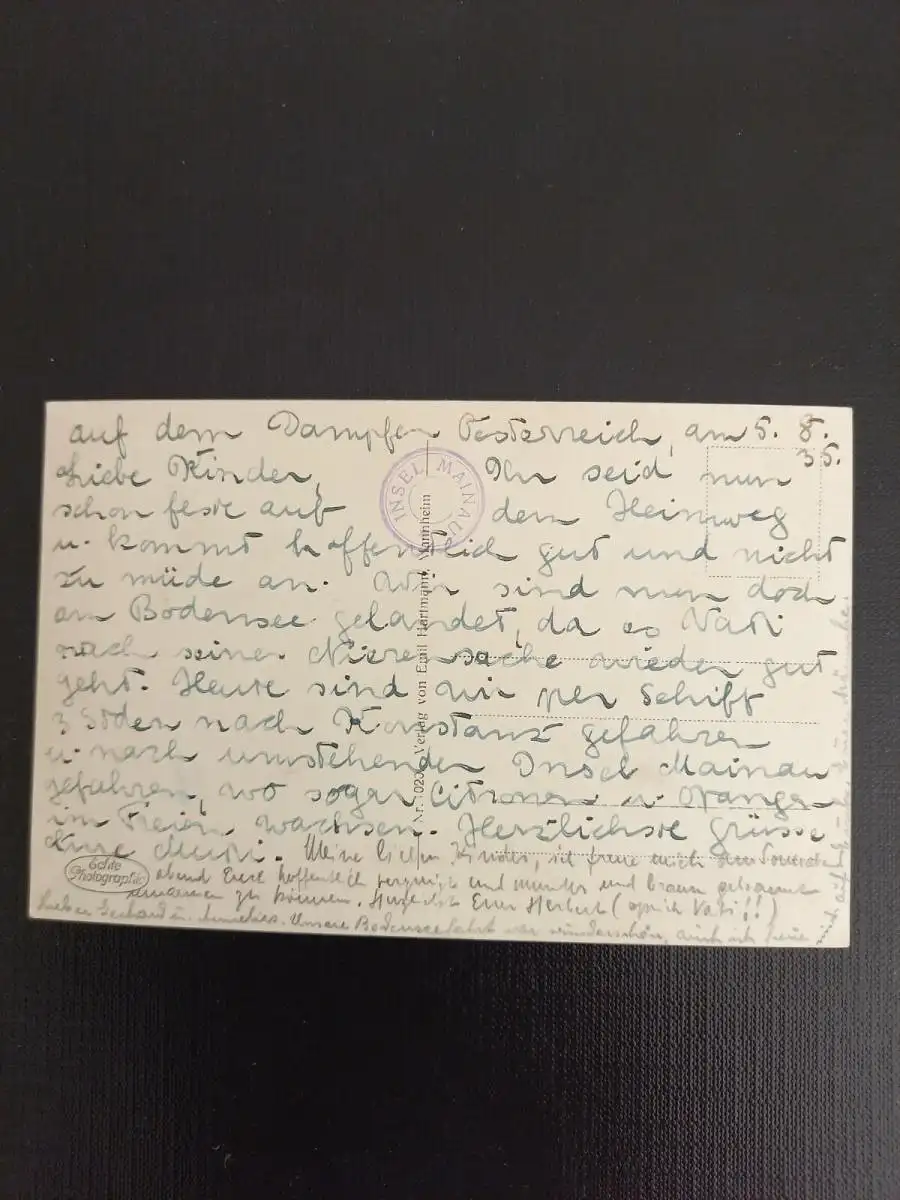 auf dem Dampfer Oesterreich, am 5. 8.
35.
Liebe Kinder, Ihr seid nun
schon feste auf dem Heimweg
u. kommt hoffentlich gut und nicht
zu müde an. Wir sind nun doch
am Bodensee gelandet, da es Vati
nach seiner Nierensache wieder gut
geht. Heute sind wir per Schiff
3 Stden nach Konstanz gefahren
u. nach umstehender Insel Mainau
gefahren, wo sogar Citronen u. Orangen
im Freien wachsen. Herzlichste Grüsse
Eure Mutti. Meine lieben Kinder, ich freue mich
abend Euch hoffentlich vergnügt und munter und braun gebrannt
zu können. Herzlichst Euer Herbert (sprich Vati!!)
Lieber Gerhard u. Annelies. Unsere Bodenseefahrt war wunderschön, auch ich freue
INSEL MAINAU
Nr. Verlag von Emil Hartmann, Mannheim
Echte
Photographie